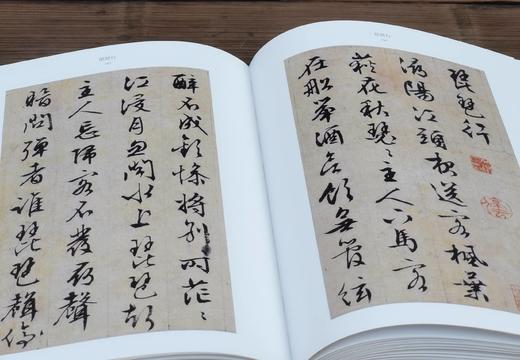 琵琶行
琵琶行
潯陽江頭夜送客楓葉
荻花秋瑟〻主人下馬客
在船舉酒欲飲無管絃
琵琶行
醉不成歡慘將別時茫〻
江浸月忽聞水上琵琶聲
主人忘歸客不發尋聲
暗問彈者誰琵琶聲停